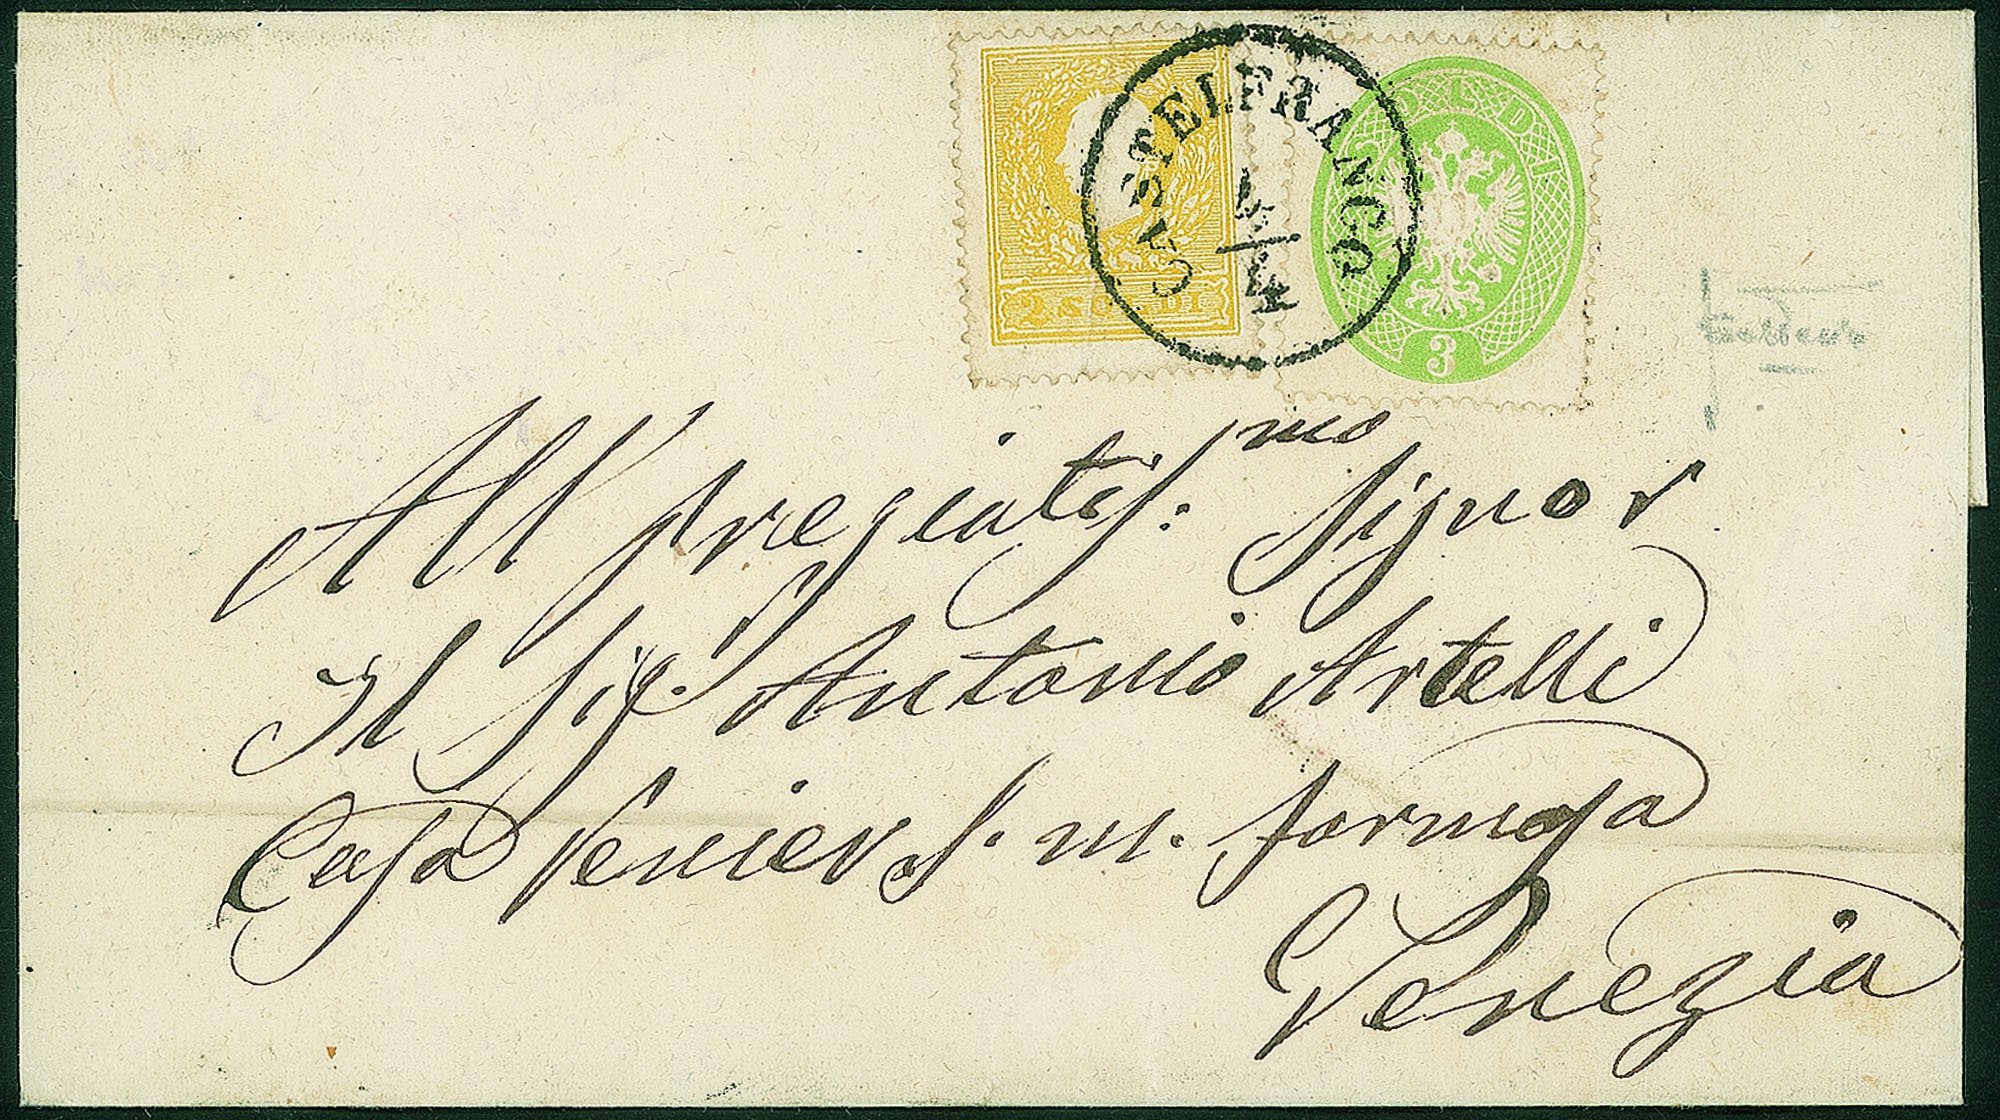 2 SOLDI
CASTELFRANCO
4
4
SOLDI
3
All pregiatis:mo Signor
Il Sigr Antonio Artelli
Casa Venier S. M. formosa
Venezia